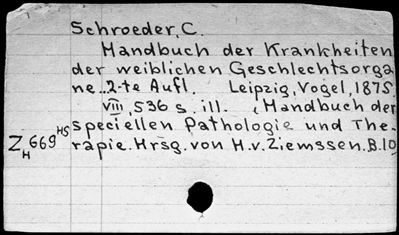 Schroeder, C.
Handbuch der Krankheiten
der weiblichen Geschlechtsorga
ne. 2-te Aufl. Leipzig, Vogel, 1875.
VIII, 536 s. ill. (Handbuch der
speciellen Pathologie und The-
rapie. Hrsg. von H. v. Ziemssen. B. 10
Z H 669 HS